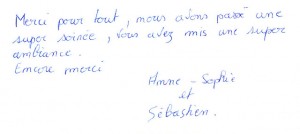 Merci pour tout, nous avons passé une
super soirée, vous avez mis une super
ambiance.
Encore merci
Anne-Sophie
et
Sébastien.